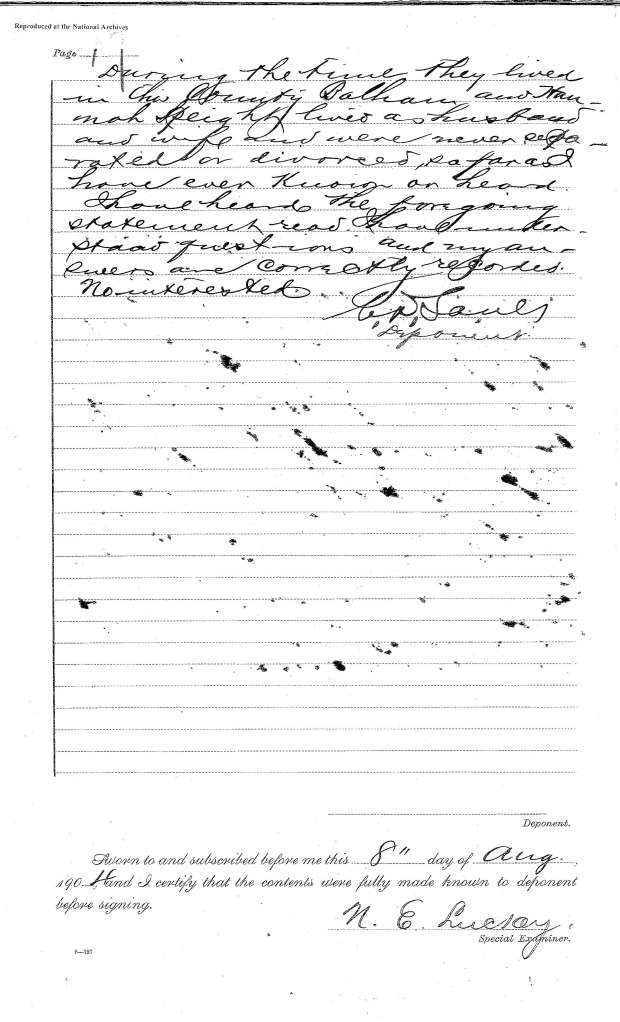 Reproduced at the National Archives
Page 1
During the time they lived
in this County Balham and Han-
nah Speight lived as husband
and wife and were never sepa-
rated or divorced, so far as I
have ever Known or heard.
I have heard the foregoing
statement read. I have under-
stood questions and my an-
swers are correctly recorded.
No interested.
Deponent
Deponent.
Sworn to and subscribed before me this 8" day of Aug.,
190 and I certify that the contents were fully made known to deponent
before signing.
N. E.
Special Examiner.